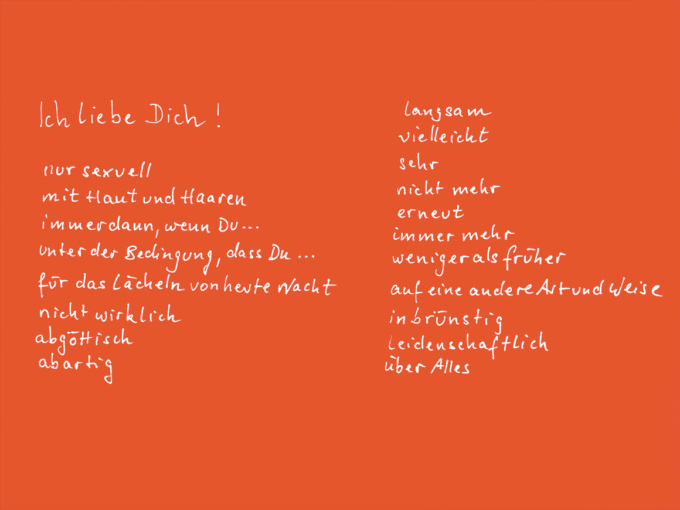 Ich liebe Dich!
nur sexuell
mit Haut und Haaren
immer dann, wenn Du...
unter der Bedingung, dass Du...
für das Lächeln von heute Nacht
nicht wirklich
abgöttisch
abartig
langsam
vielleicht
sehr
nicht mehr
erneut
immer mehr
weniger als früher
auf eine andere Art und Weise
inbrünstig
leidenschaftlich
über Alles